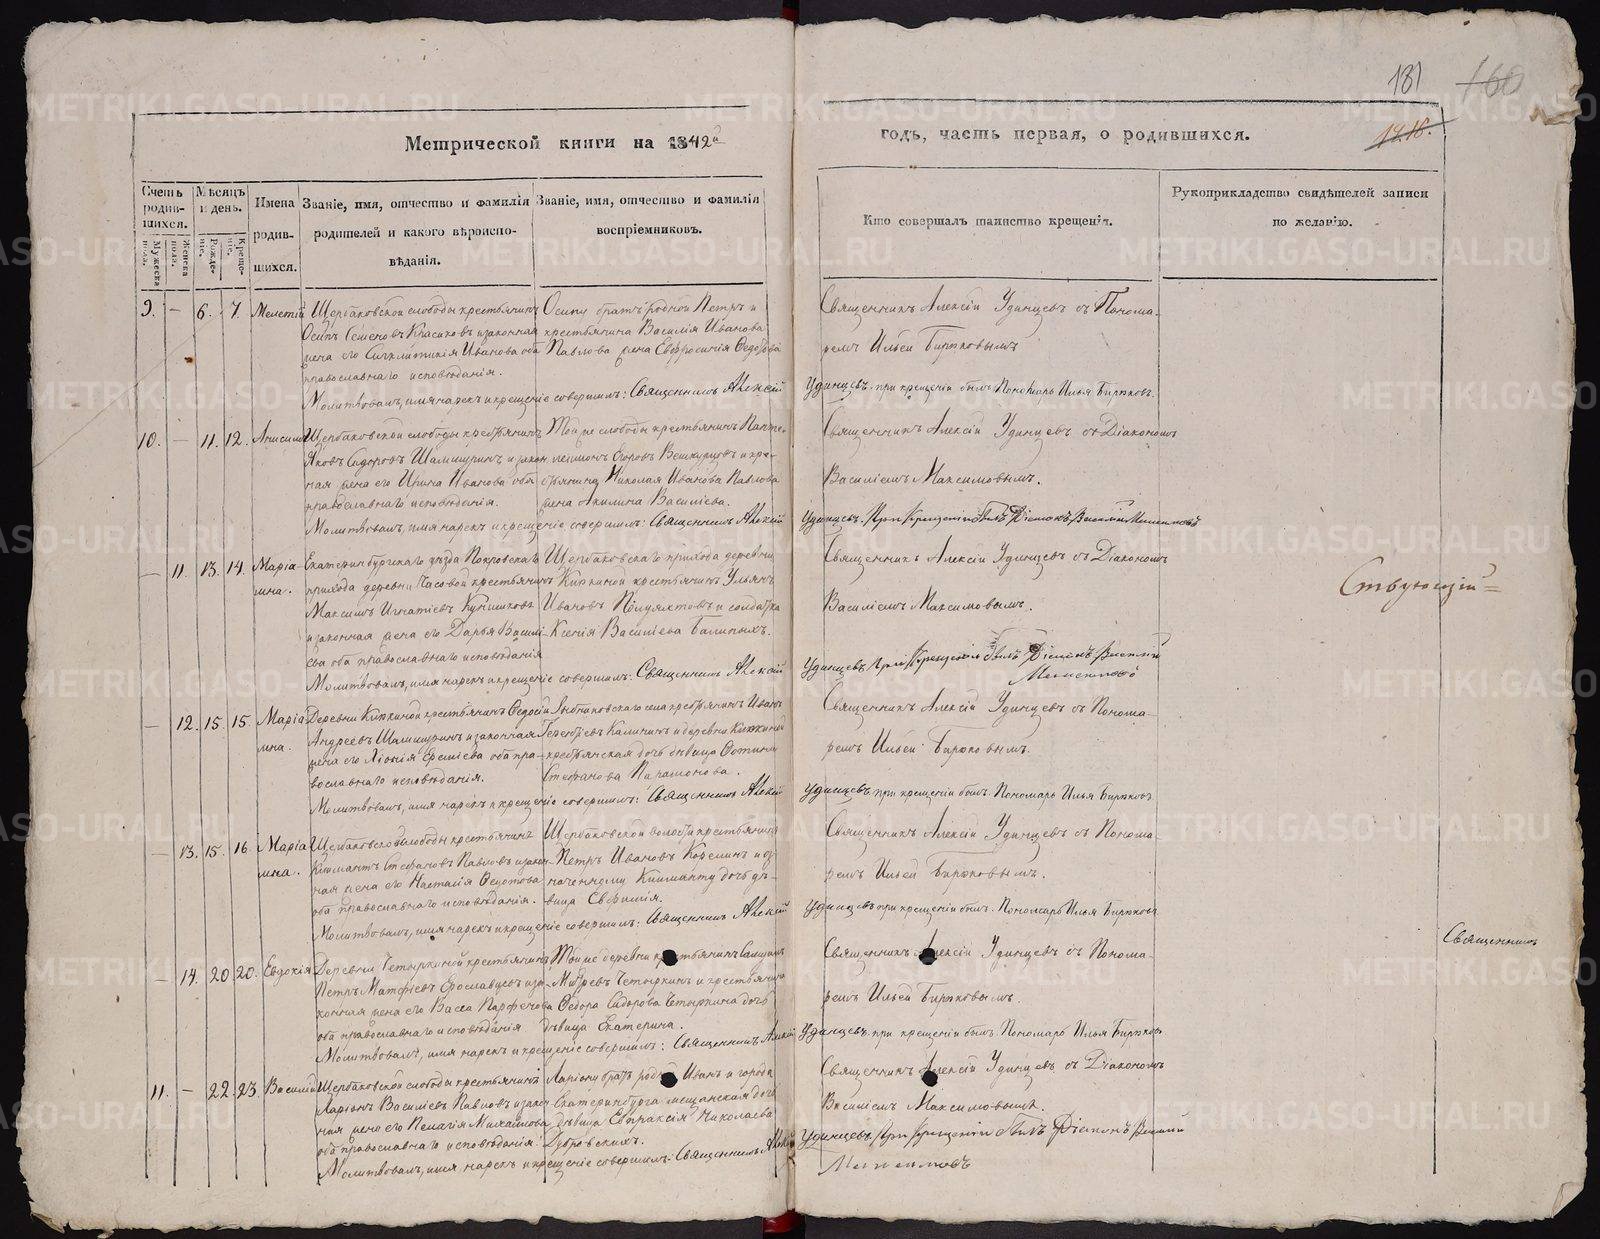 181 160
Метрической книги на 1842й
годъ, часть первая, о родившихся.
Счетъ родив-шихся.
Мѣсяцъ и день.
Имена родив-шихся.
Званіе, имя, отчество и фамилія родителей и какого вѣроиспо-вѣданія.
Званіе, имя, отчество и фамилія воспріемниковъ.
Кто совершалъ таинство крещенія.
Рукоприкладство свидѣтелей записи по желанію.
Мужеска пола.
Женска пола.
Рожде-ніе.
Креще-ніе.
9. — 6. 7. Мелетій
Щербаковской слободы крестьянинъ
Осипъ Семеновъ Красиковъ и законная
жена его Синклитикія Иванова оба
православнаго исповѣданія.
Осипу братъ родной Петръ и
крестьянина Василія Иванова
Павлова жена Евфросинія Федорова
Священникъ Алексій Удинцевъ съ Понома-
ремъ Ильей Бирюковымъ
Молитвовалъ, имя нарекъ и крещеніе совершилъ: Священникъ Алексій Удинцевъ. при крещеніи былъ Пономарь Илья Бирюковъ.
10. — 11. 12. Анисимъ
Щербаковской слободы крестьянинъ
Яковъ Сидоровъ Шалишуринъ и закон-
ная жена его Ирина Иванова оба
православнаго исповѣданія.
Той же слободы крестьянинъ Панте-
леимонъ Егоровъ и кре-
стьянина Николая Иванова Павлова
жена Акилина Васильева.
Священникъ Алексій Удинцевъ съ Діакономъ
Василіемъ Максимовымъ.
Молитвовалъ, имя нарекъ и крещеніе совершилъ: Священникъ Алексій Удинцевъ. При Крещеніи былъ Діаконъ Василій
— 11. 13. 14. Марія-
мна.
Екатеринбургскаго уѣзда Покровскаго
прихода деревни Часовой крестьянинъ
Максимъ Игнатіевъ
и законная жена его Дарья Василі-
ева оба православнаго исповѣданія
Щербаковскаго прихода деревни
Кипкиной крестьянинъ Ульянъ
Ивановъ Полуяхтовъ и солдатка
Ксенія Василіева
Священникъ Алексій Удинцевъ съ Діакономъ
Василіемъ Максимовымъ.
Молитвовалъ, имя нарекъ и крещеніе совершилъ: Священникъ Алексій Удинцевъ. При Крещеніи былъ Діаконъ Василій
— 12. 15. 15. Марія-
мна.
Деревни Кипкиной крестьянинъ Федосій
Андреевъ Шалишуринъ и законная
жена его оба пра-
вославнаго исповѣданія.
села крестьянинъ Иванъ
Калининъ и деревни Кипкиной
крестьянская дочь дѣвица
Стефанова Парамонова.
Священникъ Алексій Удинцевъ съ Понома-
ремъ Ильей Бирюковымъ.
Молитвовалъ, имя нарекъ и крещеніе совершилъ: Священникъ Алексій Удинцевъ. при крещеніи былъ Пономарь Илья Бирюковъ
— 13. 15. 16. Марія-
мна.
Щербаковской слободы крестьянинъ
Климантъ Стефановъ Павловъ и закон-
ная жена его Наталія Федотова
оба православнаго исповѣданія.
Щербаковской волости крестьянинъ
Петръ Ивановъ Корелинъ и оз-
наченному Климанту дочь дѣ-
вица Евфимія.
Священникъ Алексій Удинцевъ съ Понома-
ремъ Ильей Бирюковымъ.
Молитвовалъ, имя нарекъ и крещеніе совершилъ: Священникъ Алексій Удинцевъ при крещеніи былъ Пономарь Илья Бирюковъ
Священникъ
— 14. 20 20. Евдокія
Деревни Четыркиной крестьянинъ
Петръ Матфіевъ Ерославцевъ и за-
конная жена его Васса Парфенова
оба православнаго исповѣданія
Той же деревни крестьянинъ
Четыркинъ и крестьянина
Федора Сидорова Четыркина дочь
дѣвица Екатерина.
Священникъ Алексій Удинцевъ съ Понома-
ремъ Ильей Бирюковымъ.
Молитвовалъ, имя нарекъ и крещеніе совершилъ: Священникъ Алексій Удинцевъ. при крещеніи былъ Пономарь Илья Бирюковъ
11. — 22. 23. Василій
Щербаковской слободы крестьянинъ
Ларіонъ Василіевъ Павловъ и закон-
ная жена его Пелагія Михайлова
оба православнаго исповѣданія
Ларіону братъ родной Иванъ и города
Екатеринбурга мещанская дочь
дѣвица Евпраксія Николаева
Дубровскихъ.
Священникъ Алексій Удинцевъ съ Діакономъ
Василіемъ Максимовымъ.
Молитвовалъ, имя нарекъ и крещеніе совершилъ: Священникъ Алексій Удинцевъ. При Крещеніи былъ Діаконъ Василій
METRIKI.GASO-URAL.RU